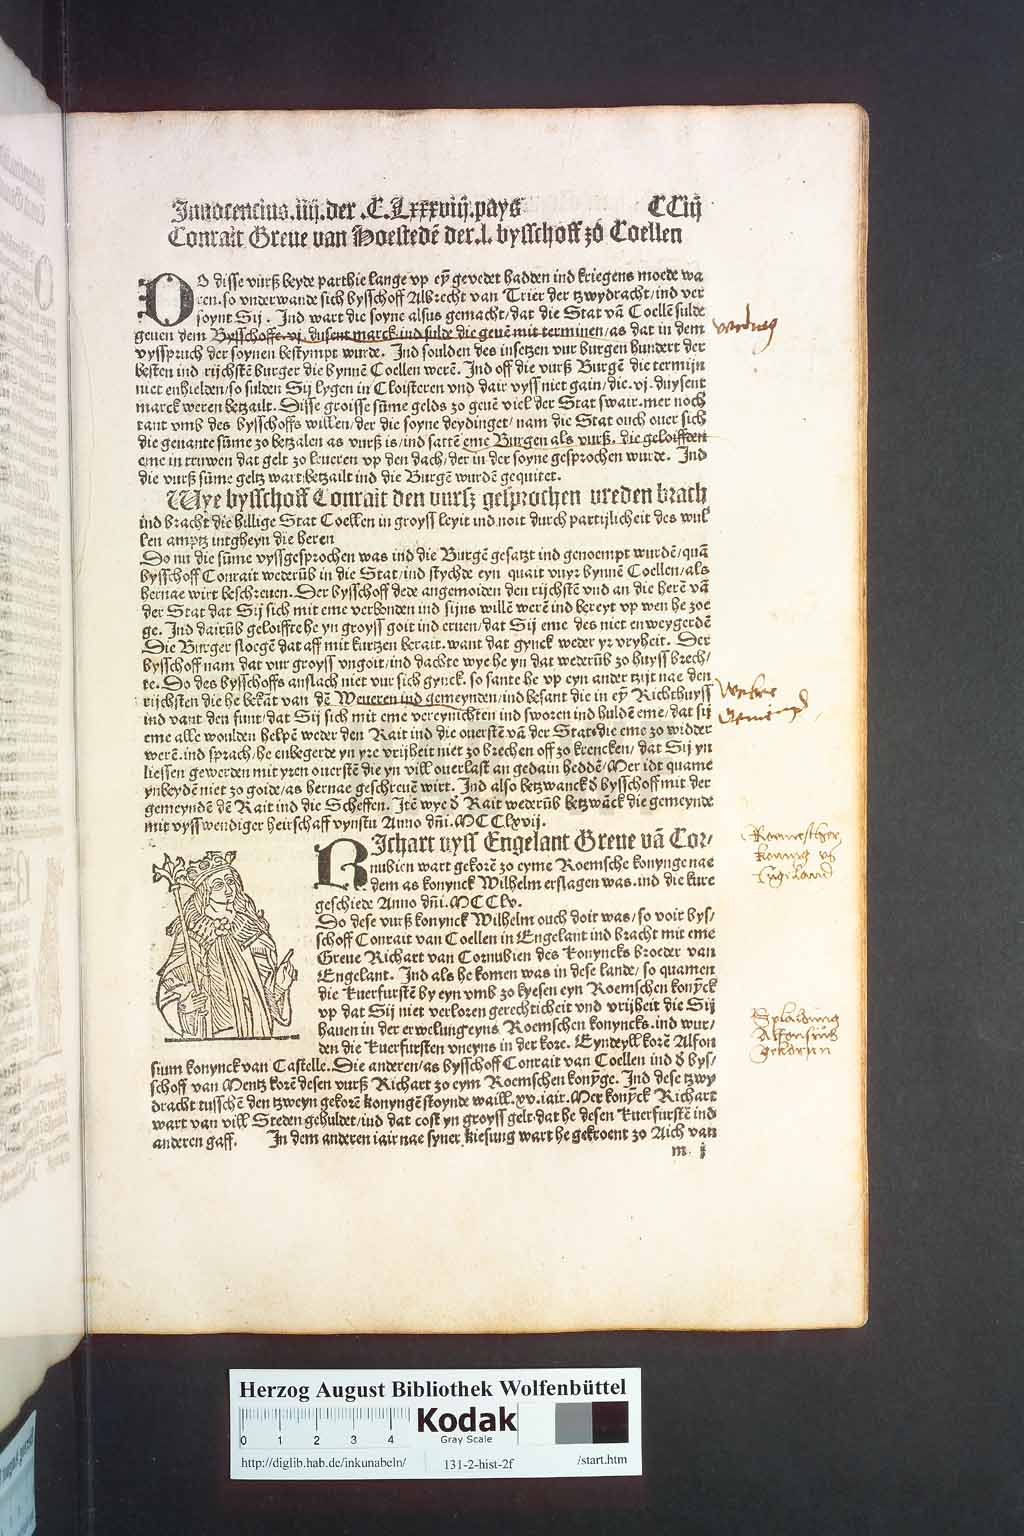 Innocencius.iiij.der .C.Lxxxviij.pays CCiij
Conrait Greue van Hoestedē der.l. bysschoff zo Coellen
DO disse vurß beyde parthie lange vp eȳ gevedet hadden ind kriegens moede wa
ren.so vnderwande sich bysschoff Albrecht van Trier der tzwydracht/ind ver
soynt Sij. Ind wart die soyne alsus gemacht/dat die Stat vā Coellē sulde
geuen dem Bysschoffe.vj.dusent marck.ind sulde die geuē mit terminen/as dat in dem
vysspruch der soynen bestympt wurde. Ind soulden des insetzen vur burgen hundert der
besten ind rijchstē burger die bynnē Coellen werē. Ind off die vurß Burgē die termijn
niet enhielden/so sulden Sij lygen in Cloisteren vnd dair vyss niet gain/die.vj.duysent
marck weren betzailt. Disse groisse sūme gelds zo geuē viel der Stat swair.mer noch
tant vmb des bysschoffs willen/der die soyne deydinget/nam die Stat ouch ouer sich
die genante sūme zo betzalen as vurß is/ind sattē eme Burgen als vurß. die geloifften
eme in truwen dat gelt zo leueren vp den dach/der in der soyne gesprochen wurde. Ind
die vurß sūme geltz wart betzailt ind die Burgē wurdē gequitet.
Wye bysschoff Conrait den vursz gesprochen vreden brach
ind bracht die hillige Stat Coellen in groyss leyit ind noit durch partijlicheit des wul
len amptz intgheyn die heren
Do nu die sūme vyssgesprochen was ind die Burgē gesatzt ind genoempt wurdē/quā
bysschoff Conrait wederūb in die Stat/ind stychde eyn quait vuyr bynnē Coellen/als
hernae wirt beschreuen. Der bysschoff dede angemoiden den rijchstē vnd an die herē vā
der Stat dat Sij sich mit eme verbonden ind sijns willē werē ind bereyt vp wen he zoe
ge. Ind dairūb geloiffte he yn groyss goit ind eruen/dat Sij eme des niet enweygerdē
Die Burger sloegē dat aff mit kurtzen berait.want dat gynck weder yr vryheit. Der
bysschoff nam dat vur groyss vngoit/ind dachte wye he yn dat wederūb zo huyss brech/
te. Do des bysschoffs anslach niet vur sich gynck. so sante he vp eyn ander tzijt nae den
rijchsten die he bekāt van dē Weueren ind gemeynden/ind besant die in eȳ Richthuyss
ind vant den funt/dat Sij sich mit eme vereynichten ind sworen ind huldē eme/dat sij
eme alle woulden helpē weder den Rait ind die ouerstē vā der Stat die eme zo widder
werē.ind sprach/he enbegerde yn yre vrijheit niet zo brechen off zo krencken/dat Sij yn
liessen gewerden mit yren ouerstē die yn vill ouerlast an gedain heddē/Mer idt quame
ynbeydē niet zo goide/as hernae geschreuē wirt. Ind also betzwanck d̄ bysschoff mit der
gemeyndē dē Rait ind die Scheffen. Itē wye d̄ Rait wederūb betzwāck die gemeynde
mit vysswendiger heirschaff vynstu Anno dn̄i.MCClxvij.
RIchart vyss Engelant Greue vā Cor-
nubien wart gekorē zo eyme Roemsche konynge nae
dem as konynck Wilhelm erslagen was.ind die kure
geschiede Anno dn̄i.MCClv.
Do dese vurß konynck Wilhelm ouch doit was/so voir bys/
schoff Conrait van Coellen in Engelant ind bracht mit eme
Greue Richart van Cornubien des konyncks broeder van
Engelant. Ind als he komen was in dese lande/so quamen
die kuerfurstē by eyn vmb zo kyesen eyn Roemschen konȳck
vp dat Sij niet verloren gerechticheit vnd vrijheit die Sij
hauen in der erwelung eyns Roemschen konyncks.ind wur/
den die kuerfursten vneyns in der kore. Eyndeyll korē Alfon
sium konynck van Castelle. Die anderen/as bysschoff Conrait van Coellen ind d̄ bys/
schoff van Mentz korē desen vurß Richart zo eym Roemschen konȳge. Ind dese tzwy
dracht tusschē den tzweyn gekorē konyngē stoynde waill.xv.iair.Mer konȳck Richart
wart van vill Steden gehuldet/ind dat cost yn groyss gelt.dat he desen kuerfurstē ind
anderen gaff. In dem anderen iair nae syner kiesung wart he gekroent zo Aich van
m. j
Weber
Roemescher
konnig
Engeland
Alfonsus
gekorun
Herzog August Bibliothek Wolfenbüttel
Kodak
Gray Scale
0 1 2 3 4
http://diglib.hab.de/inkunabeln/ 131-2-hist-2f /start.htm